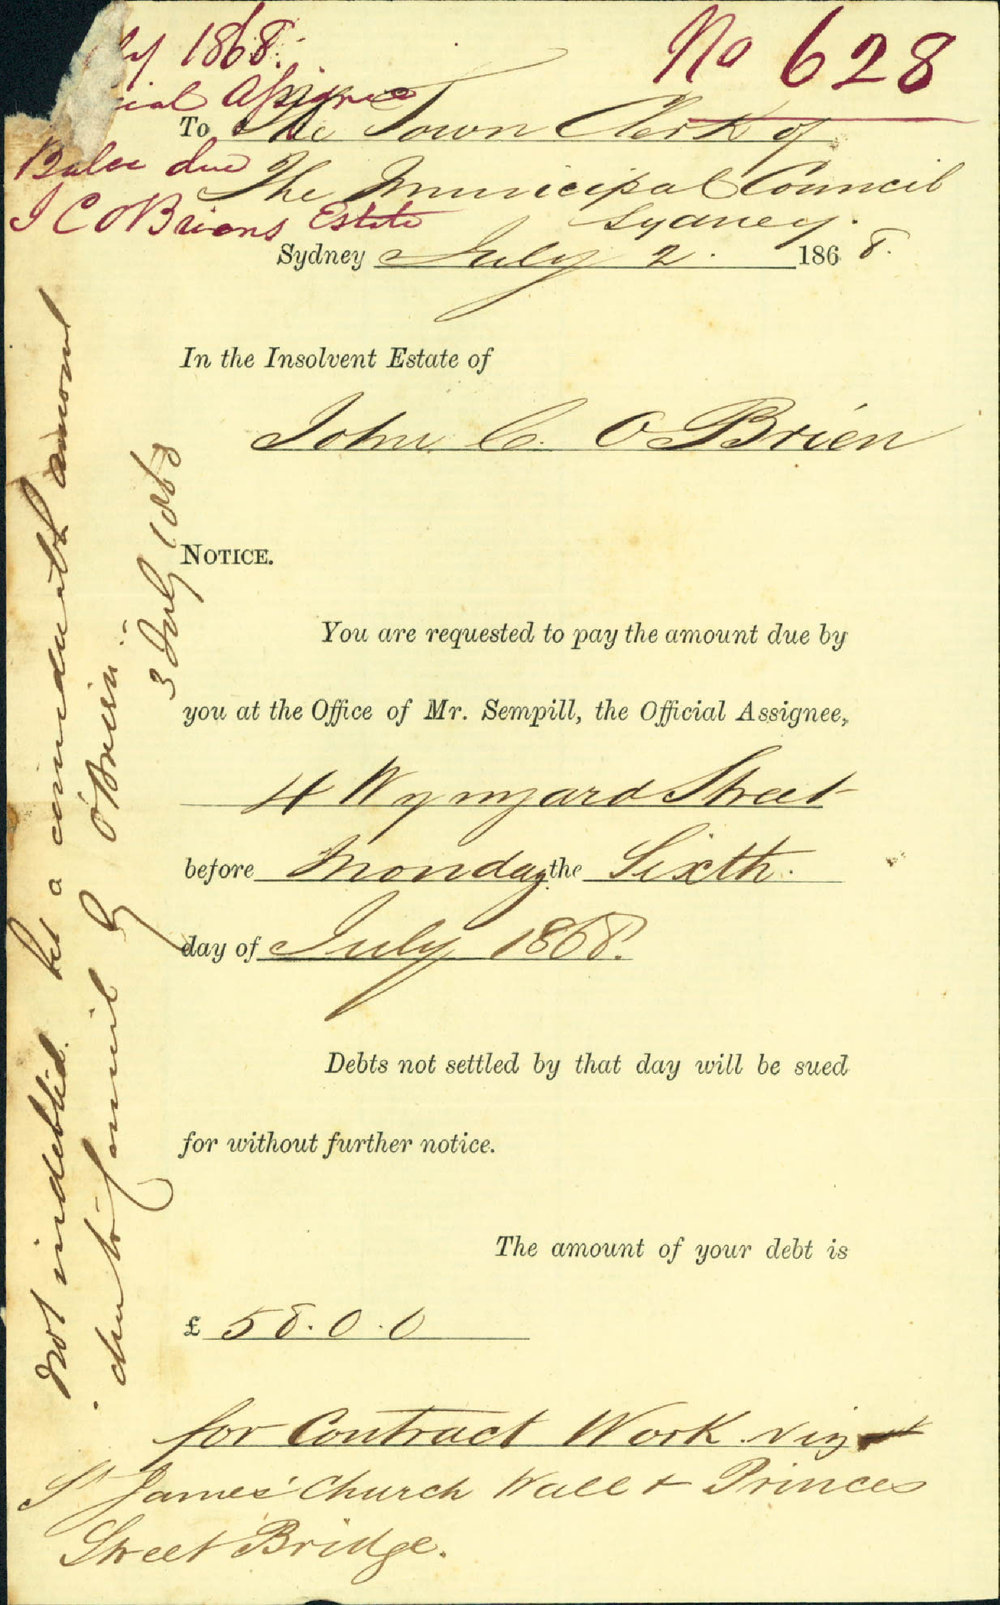 No 628
ly 1868.
cial Assignee
Balce due
J C OBriens Estate
To The Town Clerk of
The Municipal Council
Sydney.
Sydney July 2. 1868.
In the Insolvent Estate of
John C. O Brien
NOTICE.
You are requested to pay the amount due by
you at the Office of Mr. Sempill, the Official Assignee,
4 Wynyard Street
before Monday the Sixth.
day of July 1868.
Debts not settled by that day will be sued
for without further notice.
The amount of your debt is
£ 58.0.0
for Contract Work viz
St James' Church Wall & Princes
Street Bridge.
Not indebted. but a considerable amount
due to Council by O'Brien.
3 July 1868